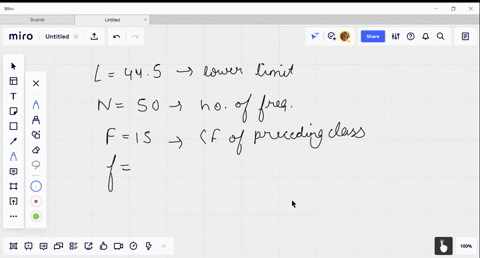 Miro
Boards
Untitled
miro
Untitled
Share
L = 44.5 → lower limit
N = 50 → no. of freq.
F = 15 → CF of preceding class
f =
100%